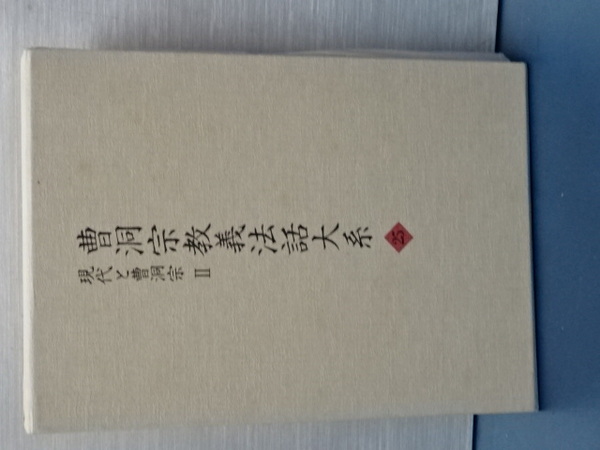 曹洞宗教義法話大系 25
現代と曹洞宗 II